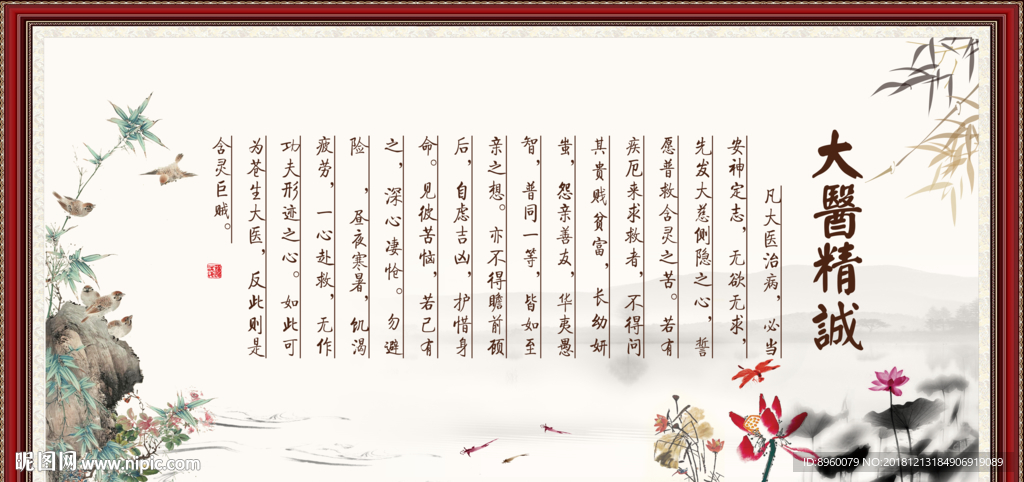 大醫精誠
凡大医治病，必当
安神定志，无欲无求，
先发大慈侧隐之心，誓
愿普救含灵之苦。若有
疾厄来求救者，不得问
其贵贱贫富，长幼妍
蚩，怨亲善友，华夷愚
智，普同一等，皆如至
亲之想。亦不得瞻前顾
后，自虑吉凶，护惜身
命。见彼苦恼，若己有
之，深心凄怆。勿避
险，昼夜寒暑，饥渴
疲劳，一心赴救，无作
功夫形迹之心。如此可
为苍生大医，反此则是
含灵巨贼。
昵图网 www.nipic.com
ID:8960079 NO:20181213184906919089